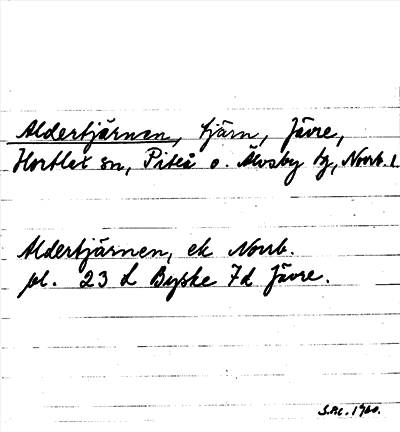 Aldertjärnen, tjärn, Jävre,
Hortlax sn, Piteå o. Älvsby tg, Norrb. l.
Aldertjärnen, ek Norrb.
pl. 23 L Byske 7d Jävre.
1960.